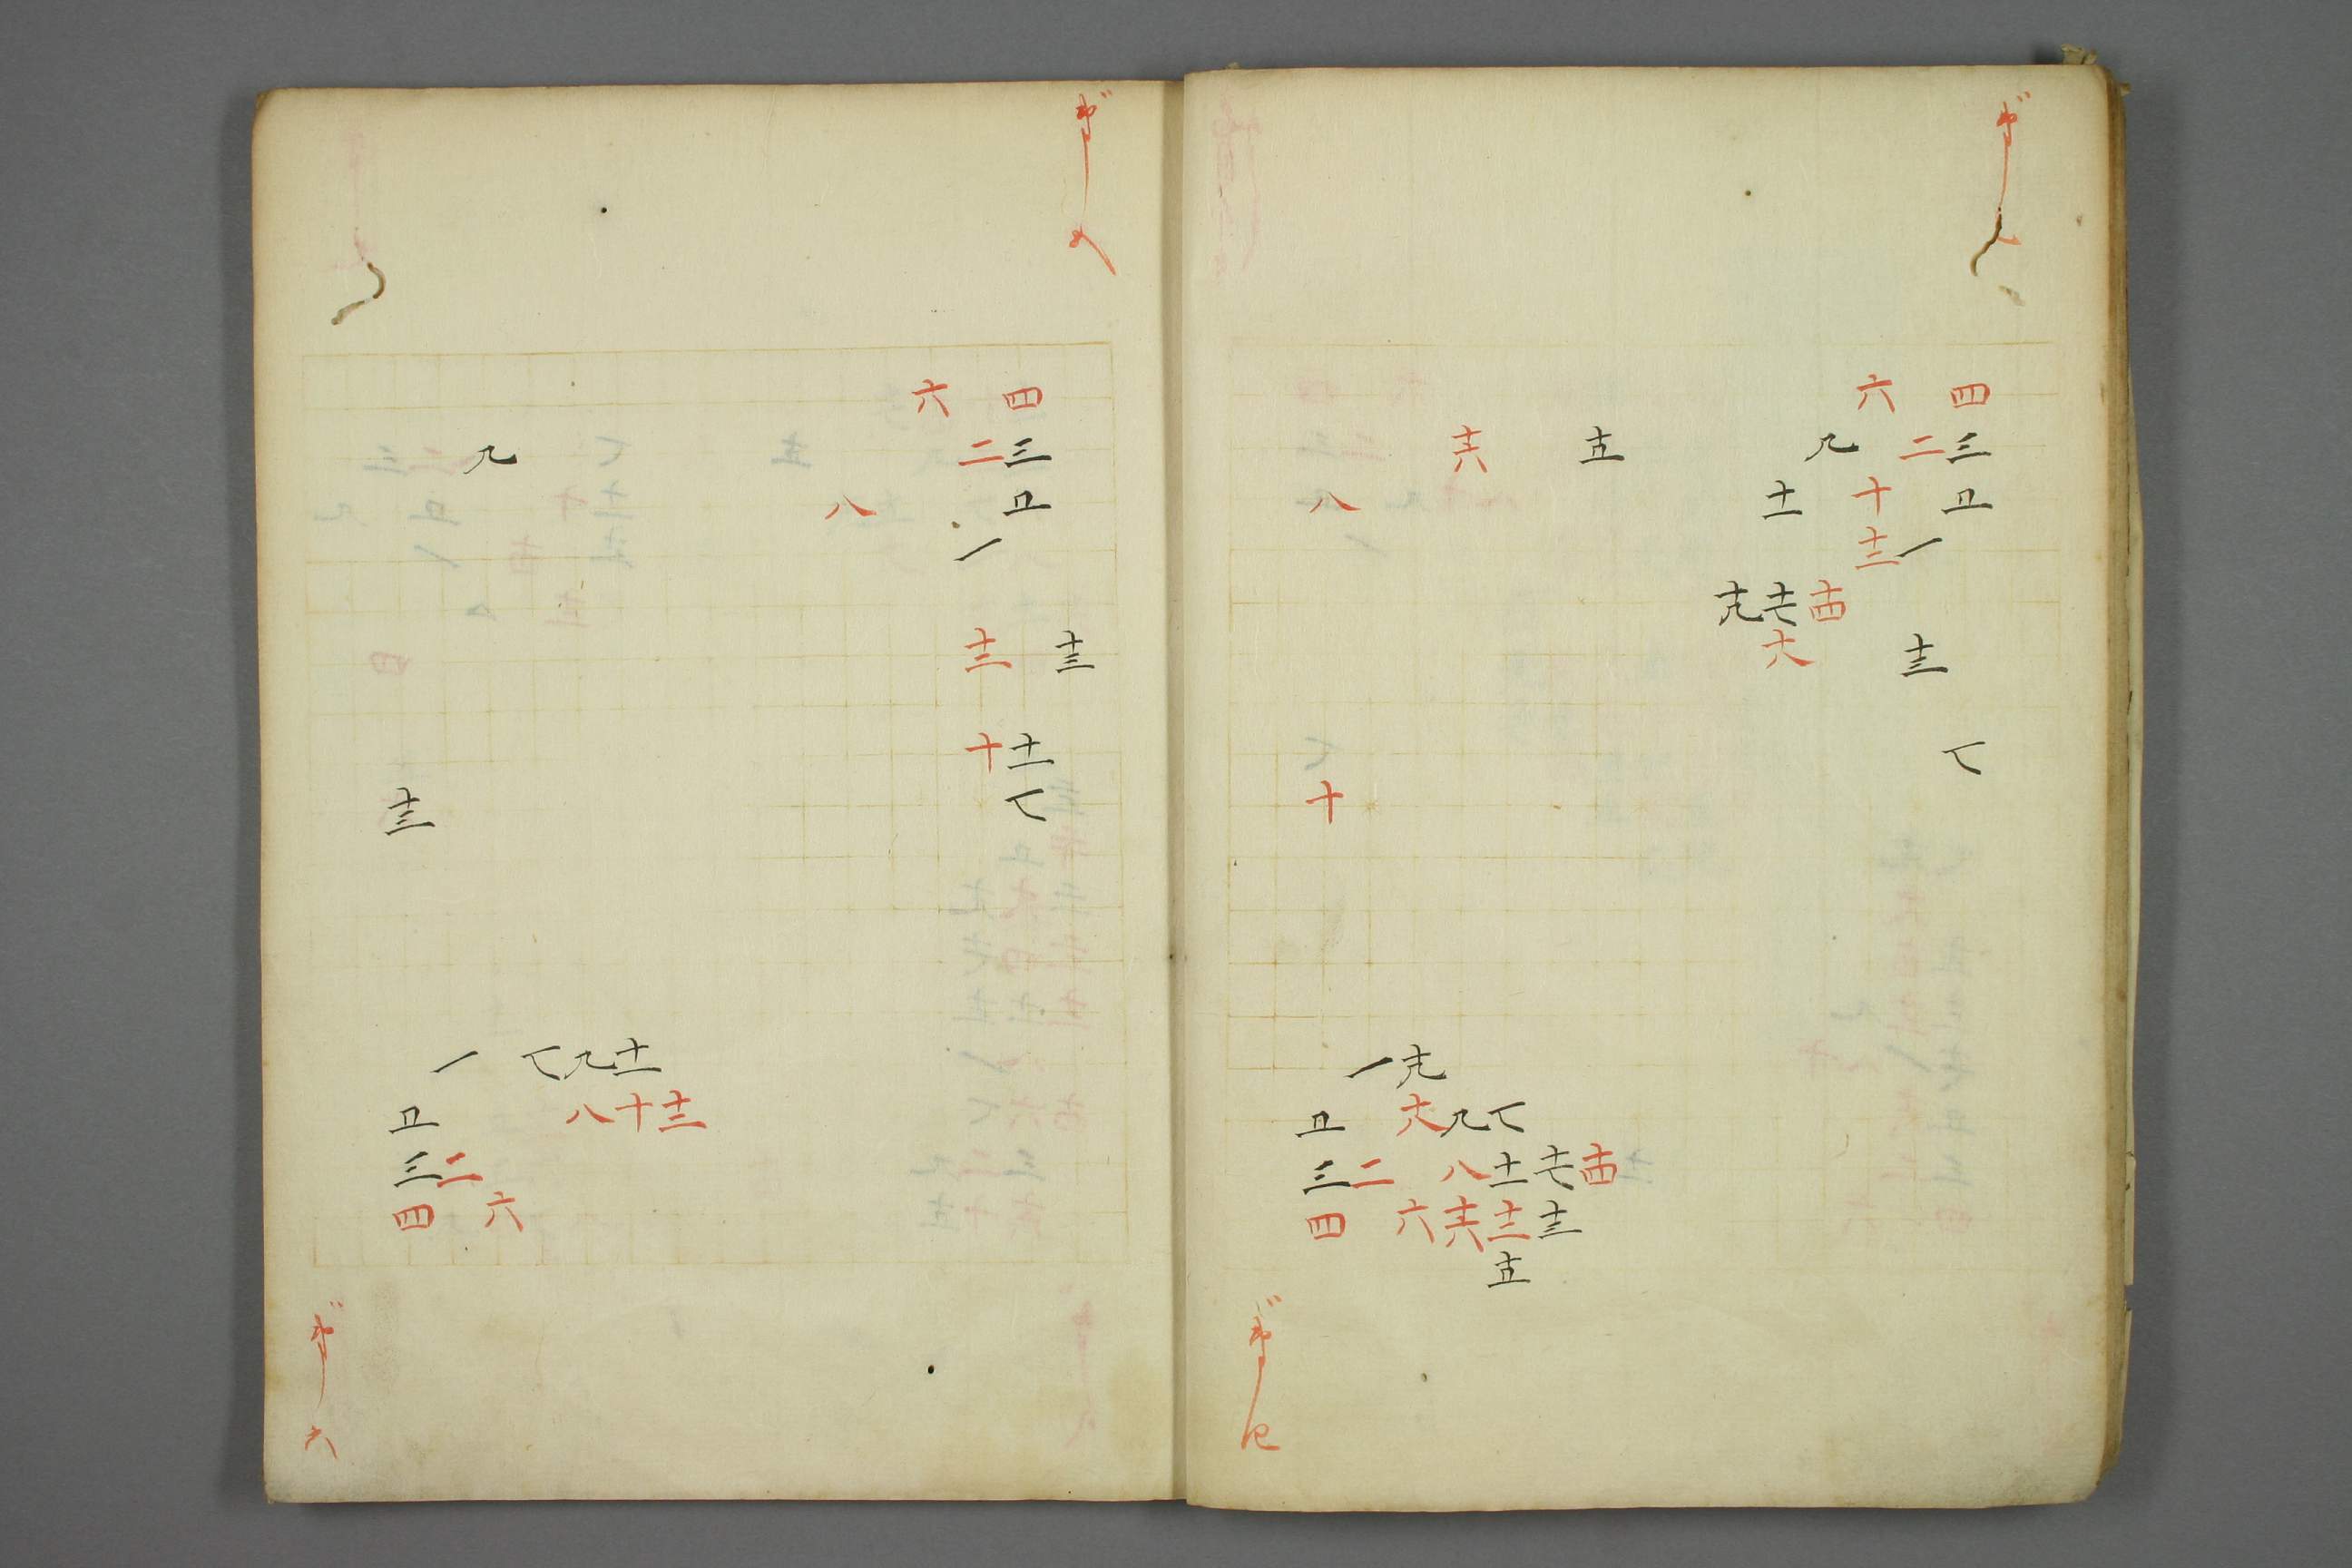 六 四
十六 十五 九 二 三
八 十一 十 五
十二 一
十九 十七 十四
十八 十三
七
十
一 十九
五 十八 九 七
三 二 八 十一 十七 十四
四 六 十六 十二 十三
十五
六 四
九 二 三
八 五
一
十二 十三
十 十一
十三 七
一 七 九 十一
五 八 十 十二
三 二
四 六